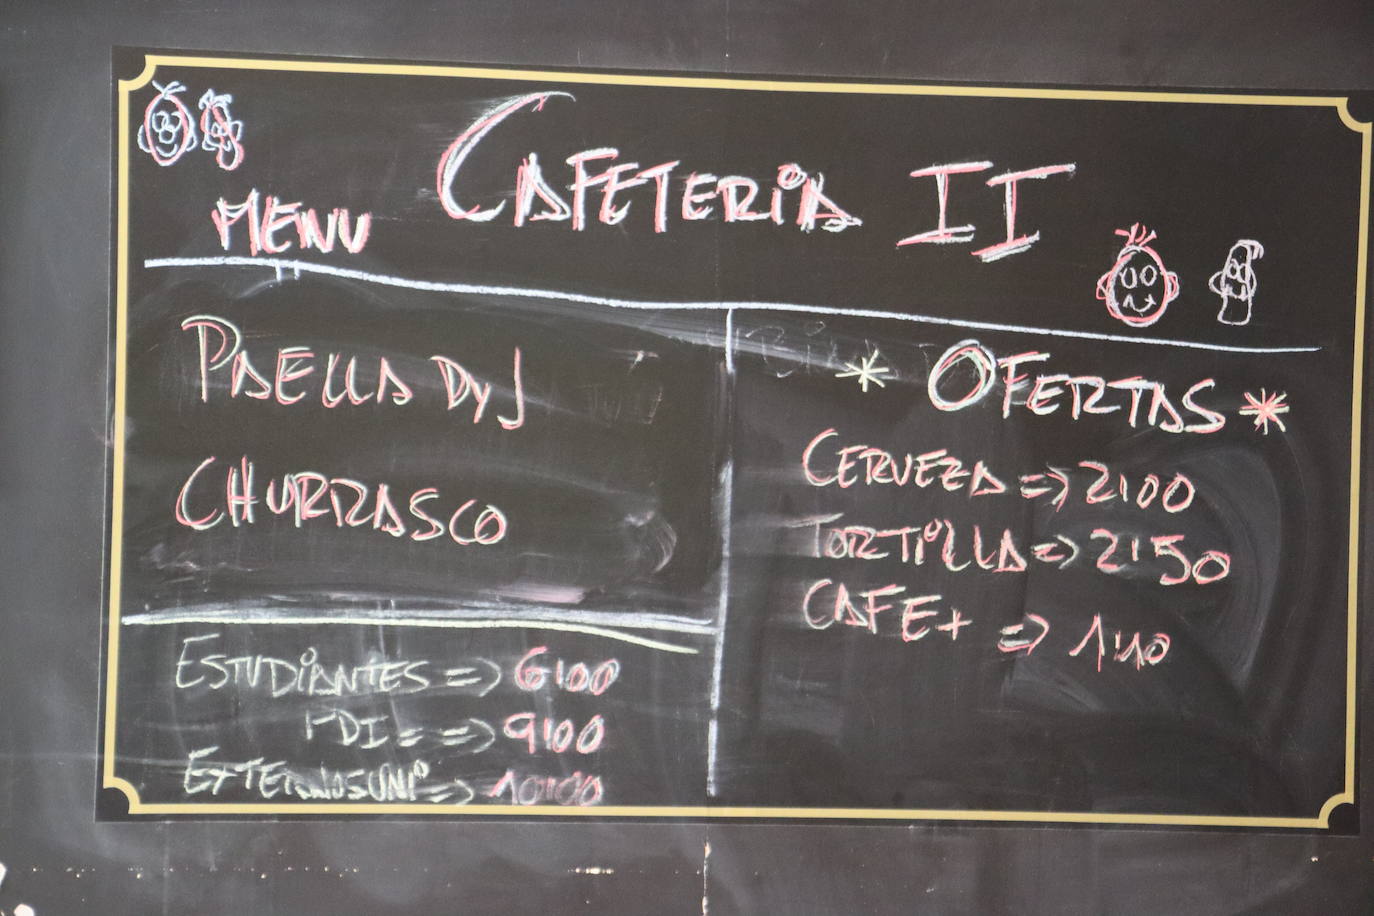 CAFETERIA II
MENU
PAELLA DyJ
CHURRASCO
ESTUDIANTES => 6'00
PDI = => 9'00
EXTERNOS UNI => 10'00
* OFERTAS *
CERVEZA => 2'00
TORTILLA => 2'50
CAFE+ => 1'40